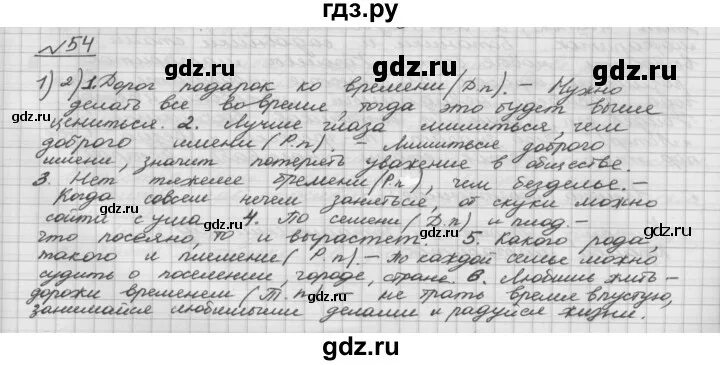 гдз.ру
№54
gdz.ru gdz.ru gdz.ru
1) 2) 1. Дорог подарок ко времени (Д.п). – Нужно
делать все вовремя, тогда это будет выше
цениться. 2. Лучше глаза лишиться, чем
доброго имени (Р.п). – Лишиться доброго
имени, значит потерять уважение в обществе.
gdz.ru gdz.ru gdz.ru
3. Нет тяжелее бремени (Р.п), чем безделье. –
Когда совсем нечем заняться, от скуки можно
сойти с ума. 4. По семени (Д.п) и плод. –
что посеяно, то и вырастет. 5. Какого рода,
gdz.ru gdz.ru gdz.ru
такого и племени (Р.п). – по каждой семье можно
судить о поселении, городе, стране. 6. Любишь жить –
дорожи временем (Т.п) – не трать время впустую,
занимайся любимыми делами и радуйся жизни.
gdz.ru